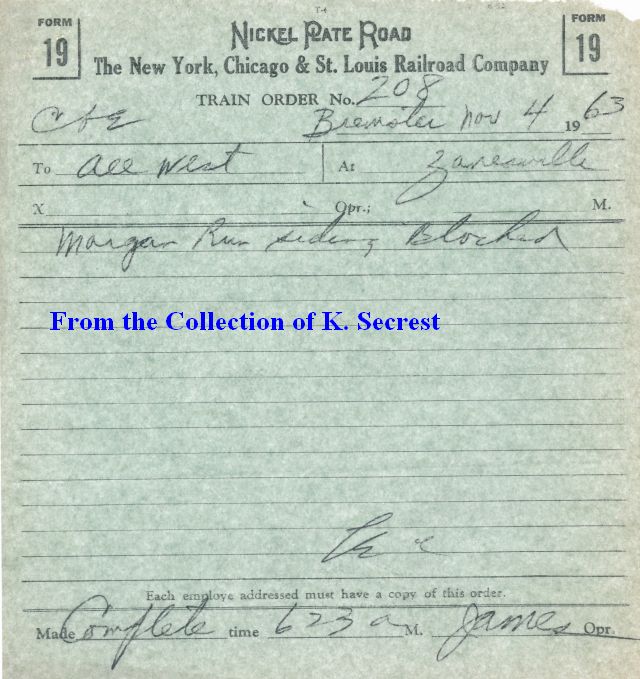 FORM 19
NICKEL PLATE ROAD
FORM 19
The New York, Chicago & St. Louis Railroad Company
TRAIN ORDER No. 208
C&E Brewster Nov 4 1963
To All West At Zanesville
X Opr.; M.
Morgan Run siding Blocked
From the Collection of K. Secrest
Each employe addressed must have a copy of this order.
Made Complete time 623 a M. James Opr.